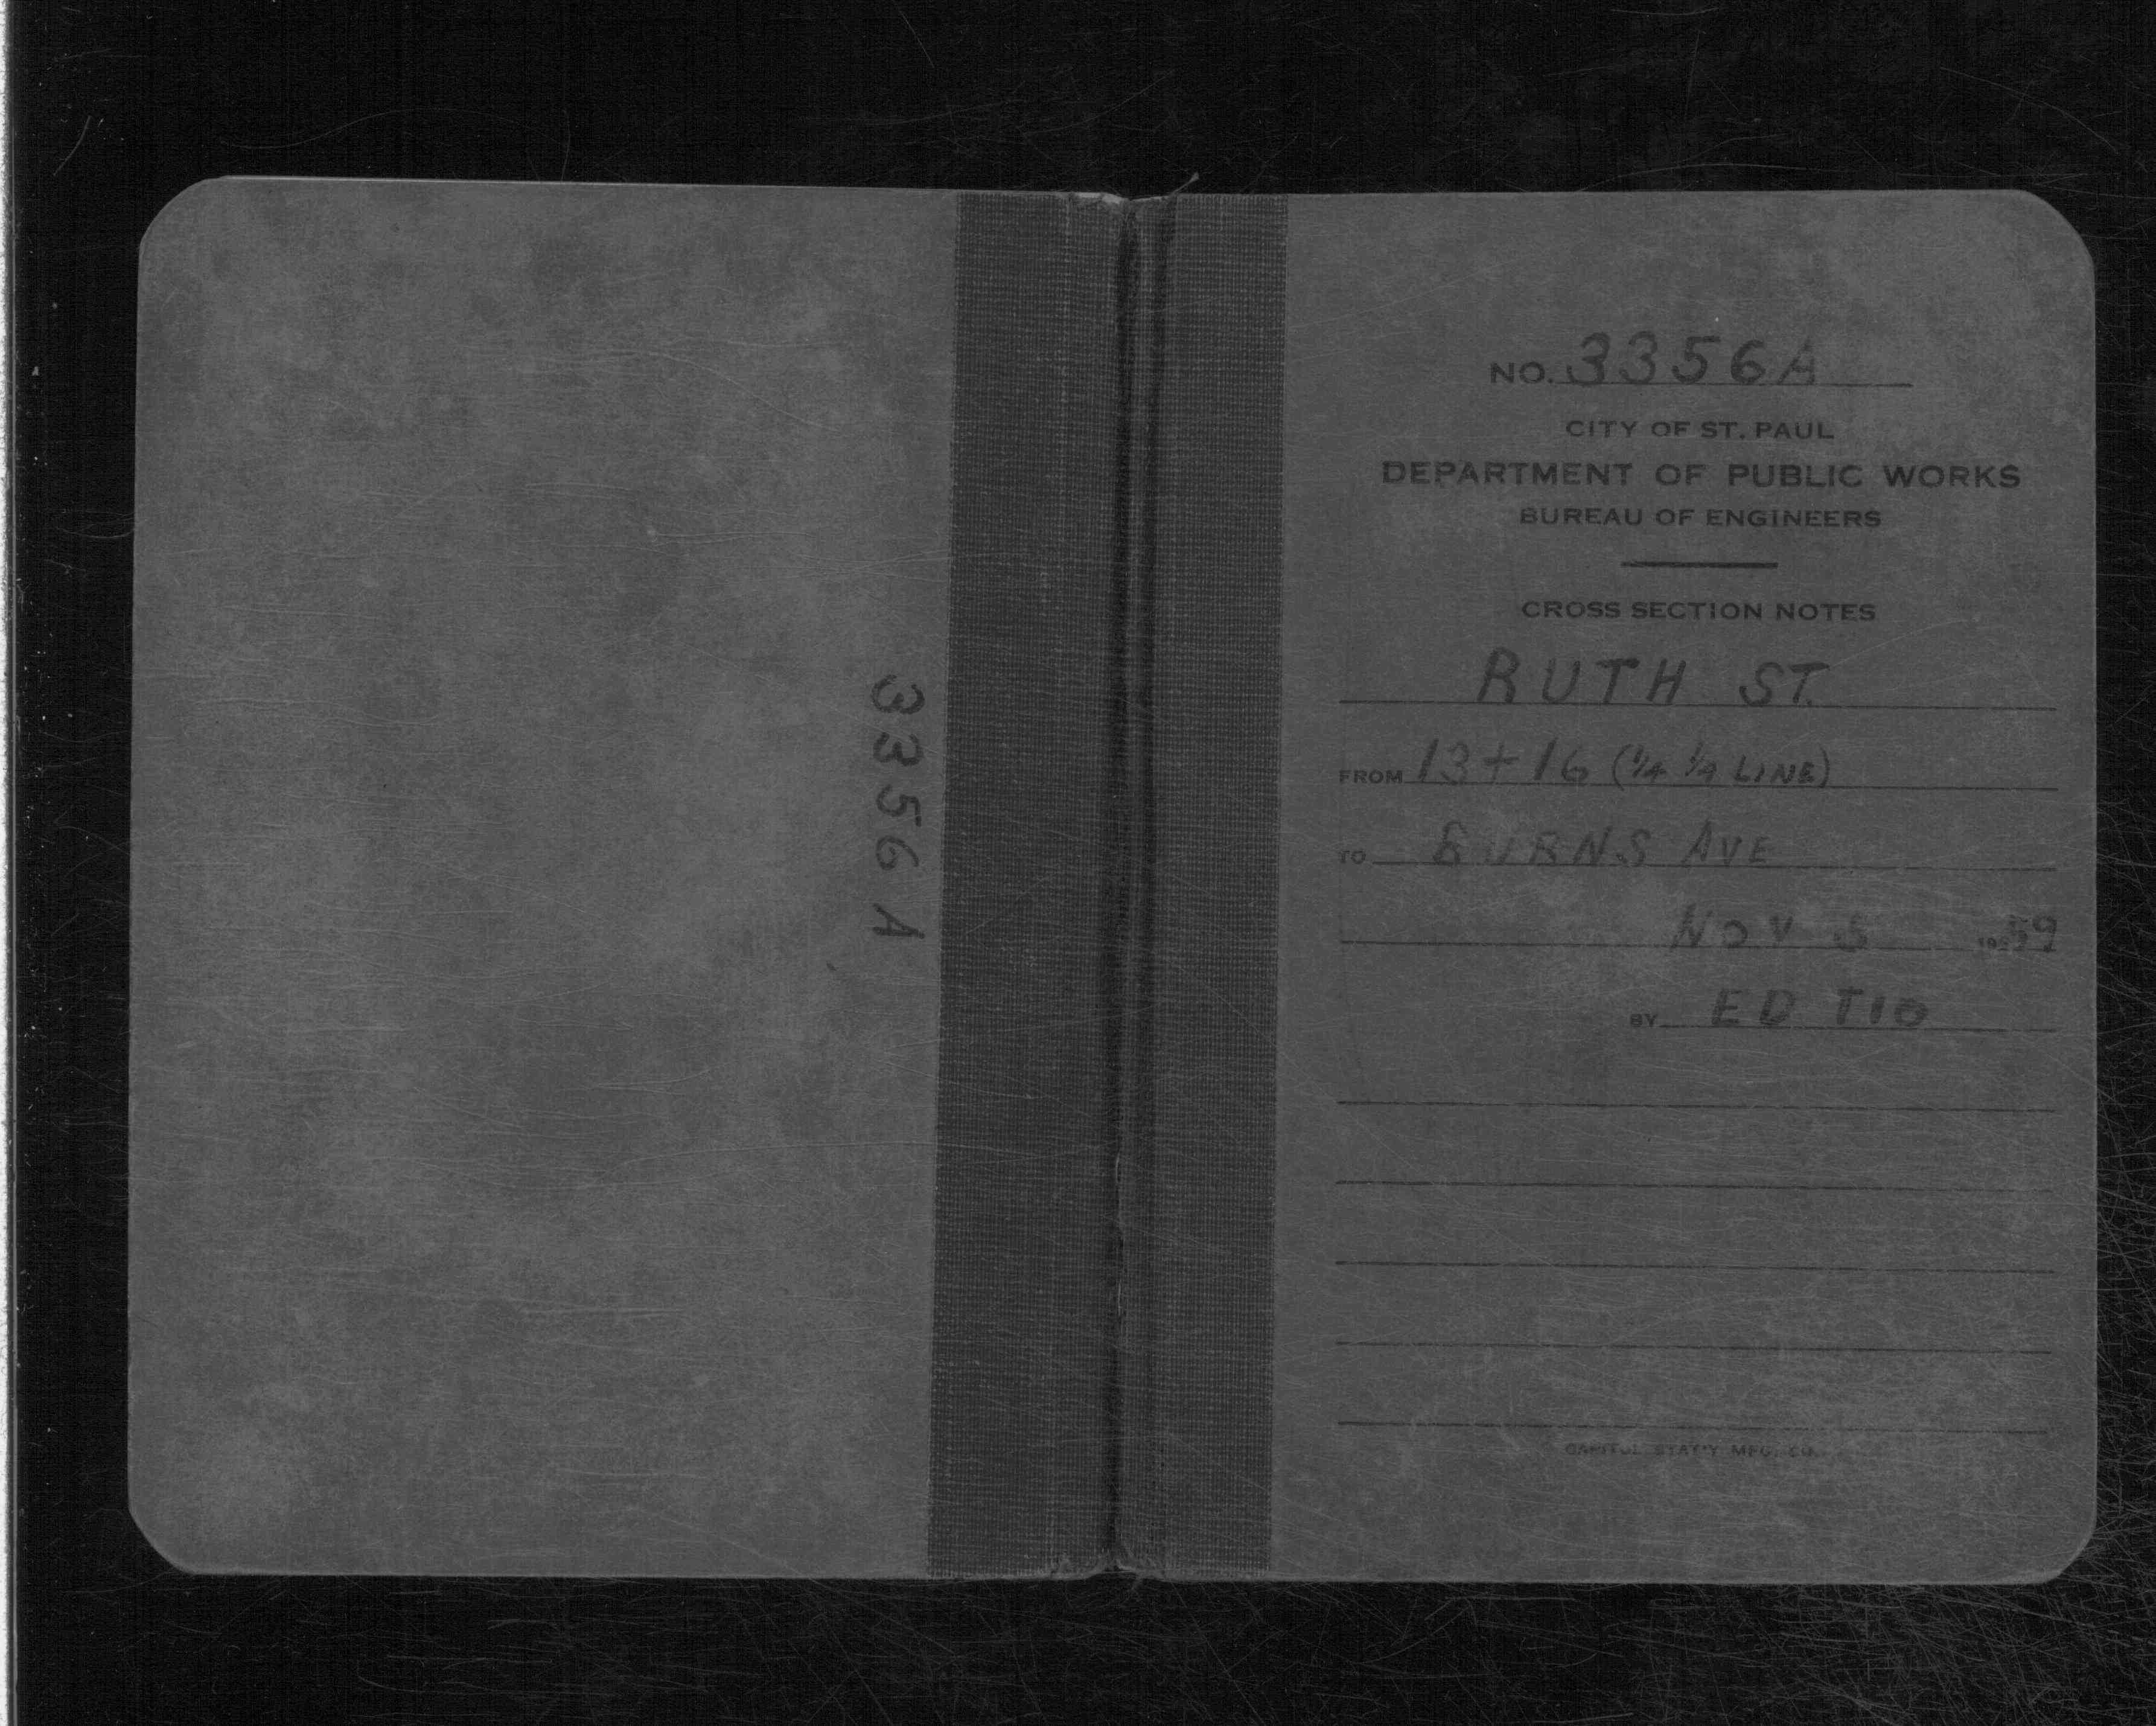 3356A
NO. 3356A
CITY OF ST. PAUL
DEPARTMENT OF PUBLIC WORKS
BUREAU OF ENGINEERS
CROSS SECTION NOTES
RUTH ST.
FROM 13+16 (1/4 1/4 LINE)
TO BURNS AVE
NOV 5 1959
BY ED TIO
CAPITOL STAT'Y MFG. CO.